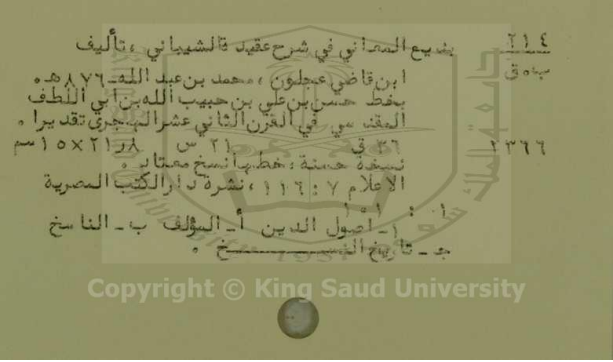 ٢١٤ بديع المعاني في شرح عقيدة الشيباني ، تأليف
ب٠ق ابن قاضي عجلون ، محمد بن عبد الله - ٨٧٦هـ٠
بخط حسن بن علي بن حبيب الله بن ابي اللطف
المقدسي في القرن الثاني عشر الهجري تقديرا ٠
٢٣٦٦ ٣٦ ق ٢١ س ٢١٫٨×١٥ سم
نسخة حسنة ، خطها نسخ معتاد ٠
الاعلام ٧ : ١١٦ ، نشرة دار الكتب المصرية
١ : ١٠١
١- اصول الدين أ- المؤلف ب- الناسخ
جـ - تاريخ النسخ ٠
Copyright © King Saud University